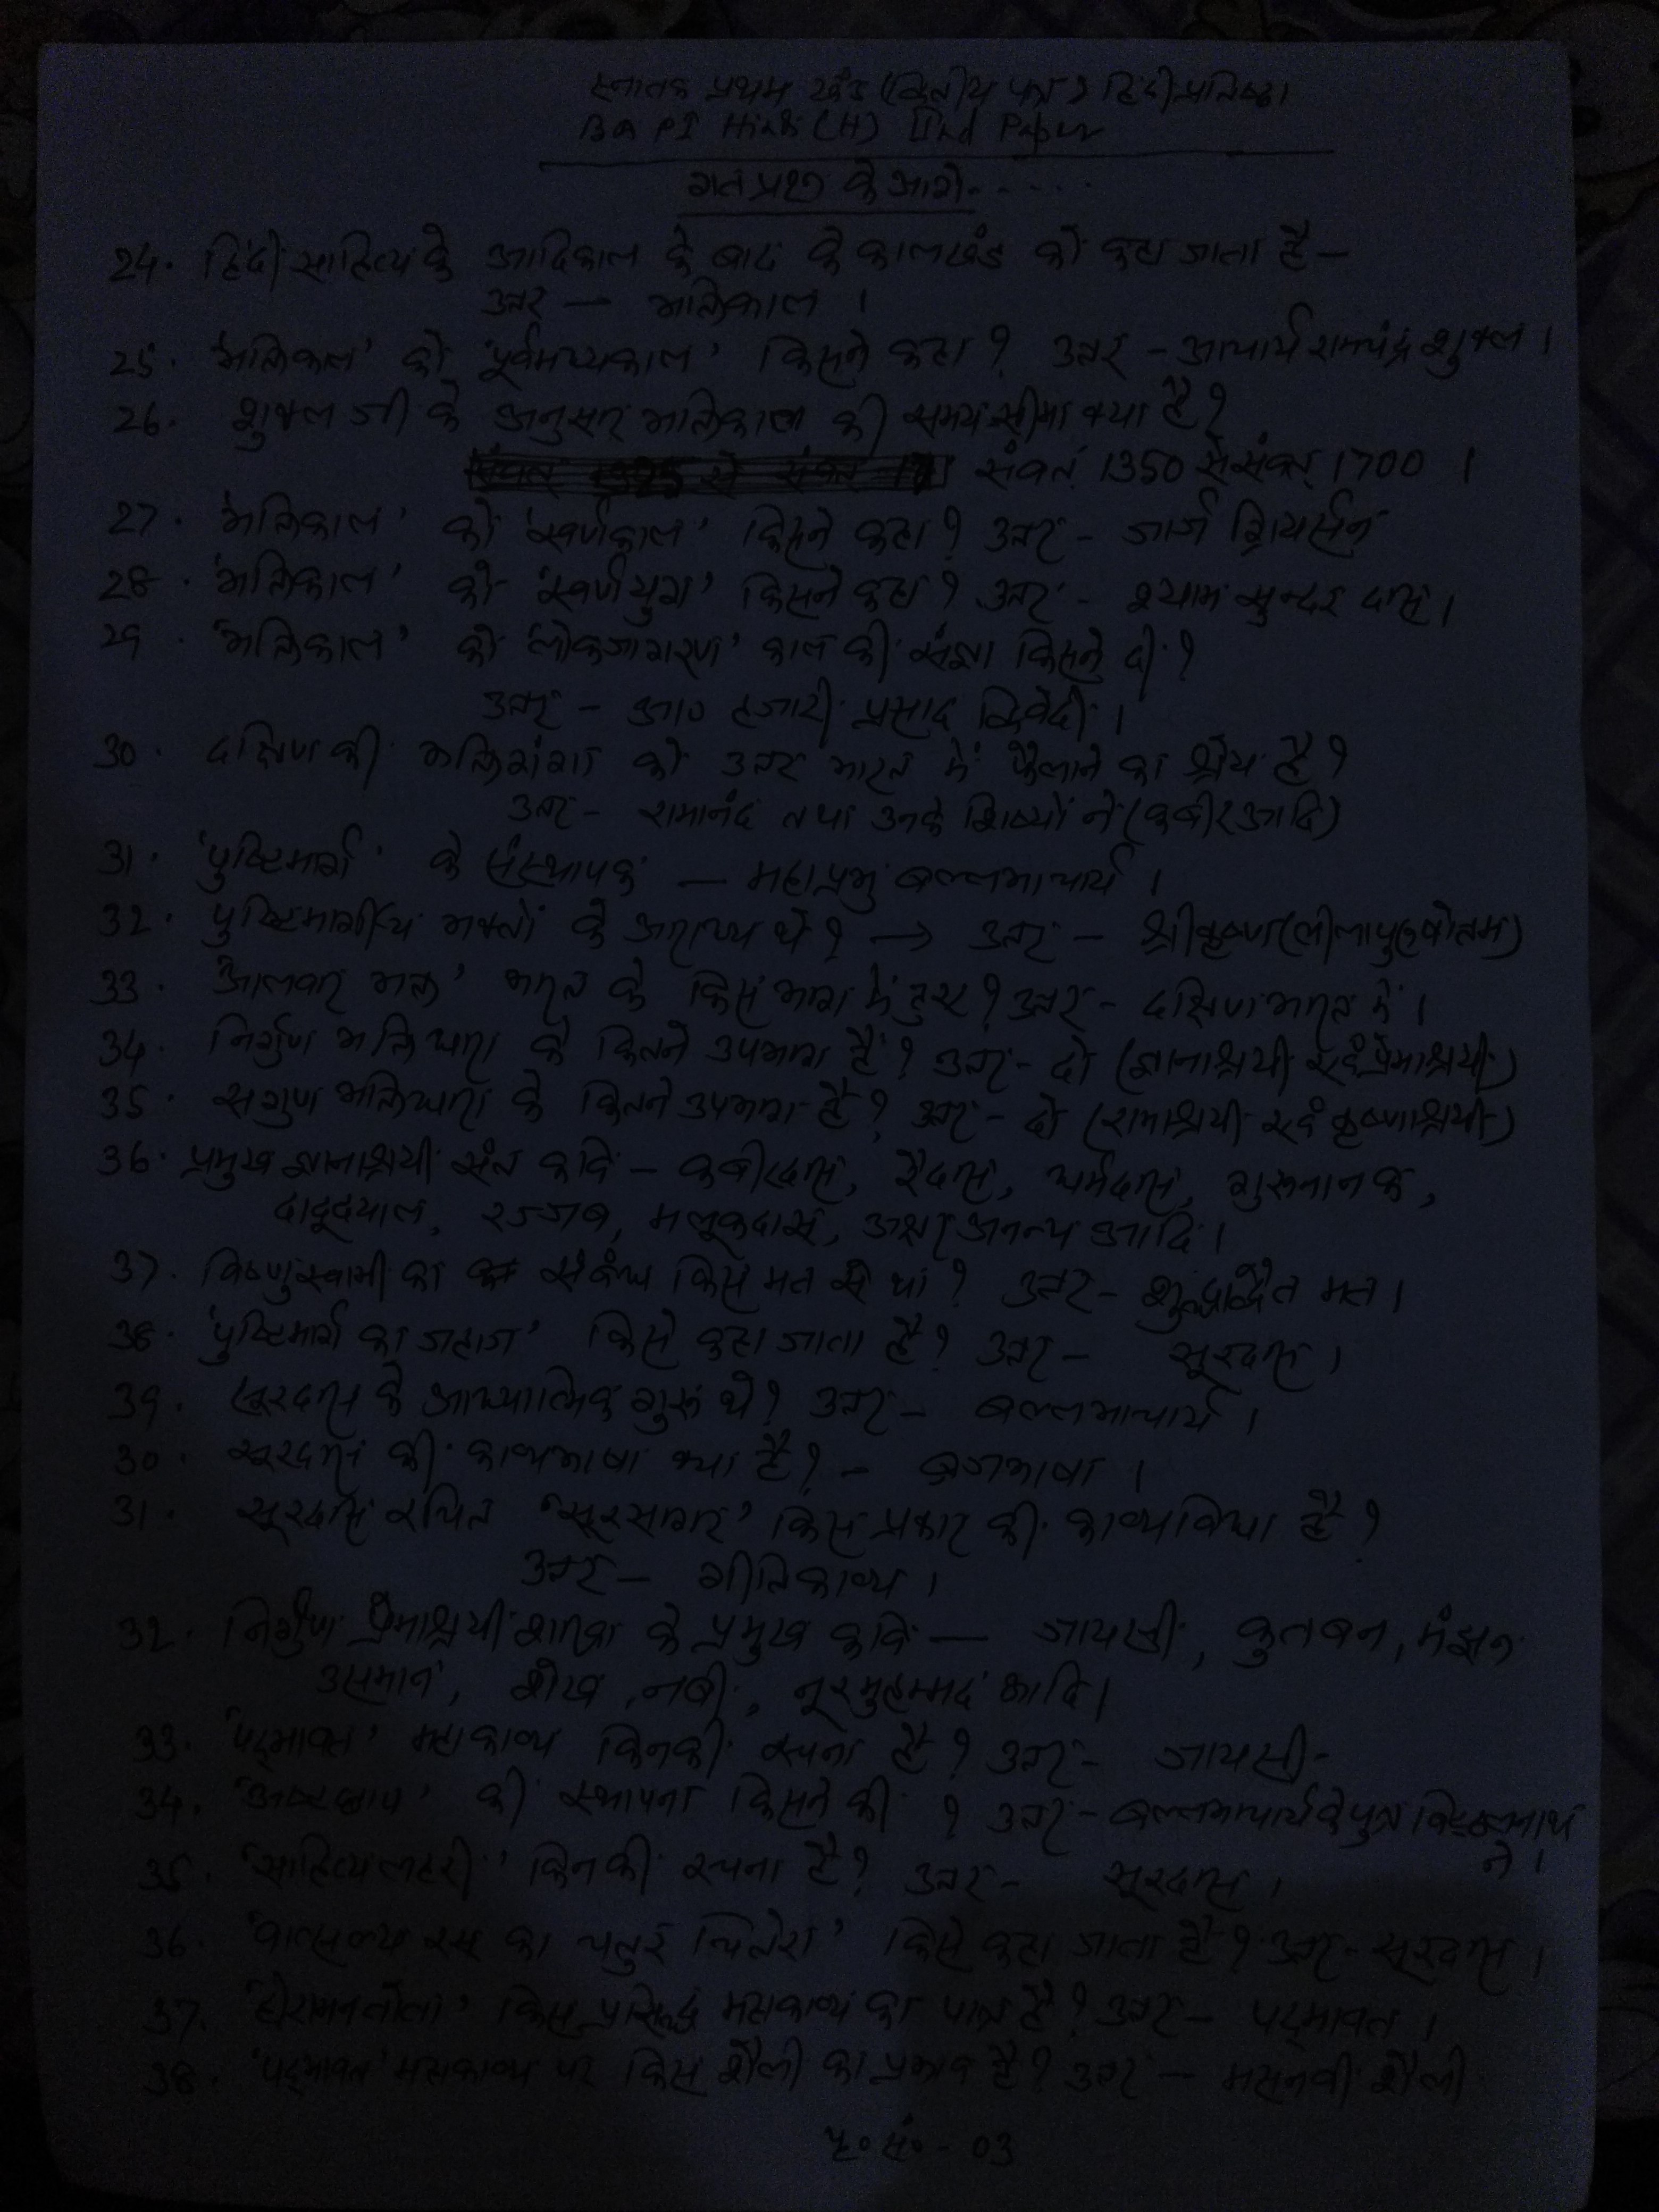 स्नातक प्रथम खंड (द्वितीय पत्र) हिंदी प्रतिष्ठा
BA PI Hindi (H) IInd Paper
गत प्रश्न के आगे.....
24. हिंदी साहित्य के आदिकाल के बाद के कालखंड को कहा जाता है —
उत्तर — भक्तिकाल ।
25. 'भक्तिकाल' को 'पूर्वमध्यकाल' किसने कहा ? उत्तर – आचार्य रामचंद्र शुक्ल ।
26. शुक्ल जी के अनुसार भक्तिकाल की समय सीमा क्या है ?
संवत् 1350 से संवत् 1700 ।
27. 'भक्तिकाल' को 'स्वर्णकाल' किसने कहा ? उत्तर – जार्ज ग्रियर्सन
28. 'भक्तिकाल' को 'स्वर्णयुग' किसने कहा ? उत्तर – श्याम सुन्दर दास ।
29. 'भक्तिकाल' को 'लोकजागरण' काल की संज्ञा किसने दी ?
उत्तर – आ० हजारी प्रसाद द्विवेदी ।
30. दक्षिण की भक्तिगंगा को उत्तर भारत में फैलाने का श्रेय है ?
उत्तर – रामानंद तथा उनके शिष्यों ने (कबीर आदि)
31. 'पुष्टिमार्ग' के संस्थापक — महाप्रभु बल्लभाचार्य ।
32. पुष्टिमार्गीय भक्तों के अराध्य थे ? → उत्तर – श्रीकृष्ण (लीलापुरुषोत्तम)
33. 'आलवार भक्त' भारत के किस भाग में हुए ? उत्तर – दक्षिण भारत में ।
34. निर्गुण भक्तिधारा के कितने उपभाग हैं ? उत्तर – दो (ज्ञानाश्रयी एवं प्रेमाश्रयी)
35. सगुण भक्तिधारा के कितने उपभाग हैं ? उत्तर – दो (रामाश्रयी एवं कृष्णाश्रयी)
36. प्रमुख ज्ञानाश्रयी संत कवि – कबीरदास, रैदास, धर्मदास, गुरुनानक,
दादूदयाल, रज्जब, मलूकदास, अक्षर अनन्य आदि ।
37. विष्णुस्वामी का संबंध किस मत से था ? उत्तर – शुद्धाद्वैत मत ।
38. 'पुष्टिमार्ग का जहाज' किसे कहा जाता है ? उत्तर – सूरदास ।
39. सूरदास के आध्यात्मिक गुरु थे ? उत्तर – बल्लभाचार्य ।
30. सूरदास की काव्यभाषा क्या है ? – ब्रजभाषा ।
31. सूरदास रचित 'सूरसागर' किस प्रकार की काव्यविधा है ?
उत्तर – गीतिकाव्य ।
32. निर्गुण प्रेमाश्रयी शाखा के प्रमुख कवि — जायसी, कुतबन, मंझन
उसमान, शेख नबी, नूर मुहम्मद आदि ।
33. 'पद्मावत' महाकाव्य किनकी रचना है ? उत्तर – जायसी
34. 'अष्टछाप' की स्थापना किसने की ? उत्तर – बल्लभाचार्य के पुत्र विट्ठलनाथ
ने ।
35. 'साहित्य लहरी' किनकी रचना है ? उत्तर – सूरदास ।
36. 'वात्सल्य रस का चतुर चितेरा' किसे कहा जाता है ? उत्तर – सूरदास ।
37. 'हीरामन तोता' किस प्रसिद्ध महाकाव्य का पात्र है ? उत्तर – पद्मावत ।
38. 'पद्मावत' महाकाव्य पर किस शैली का प्रभाव है ? उत्तर – मसनवी शैली
पृ० सं० - 03